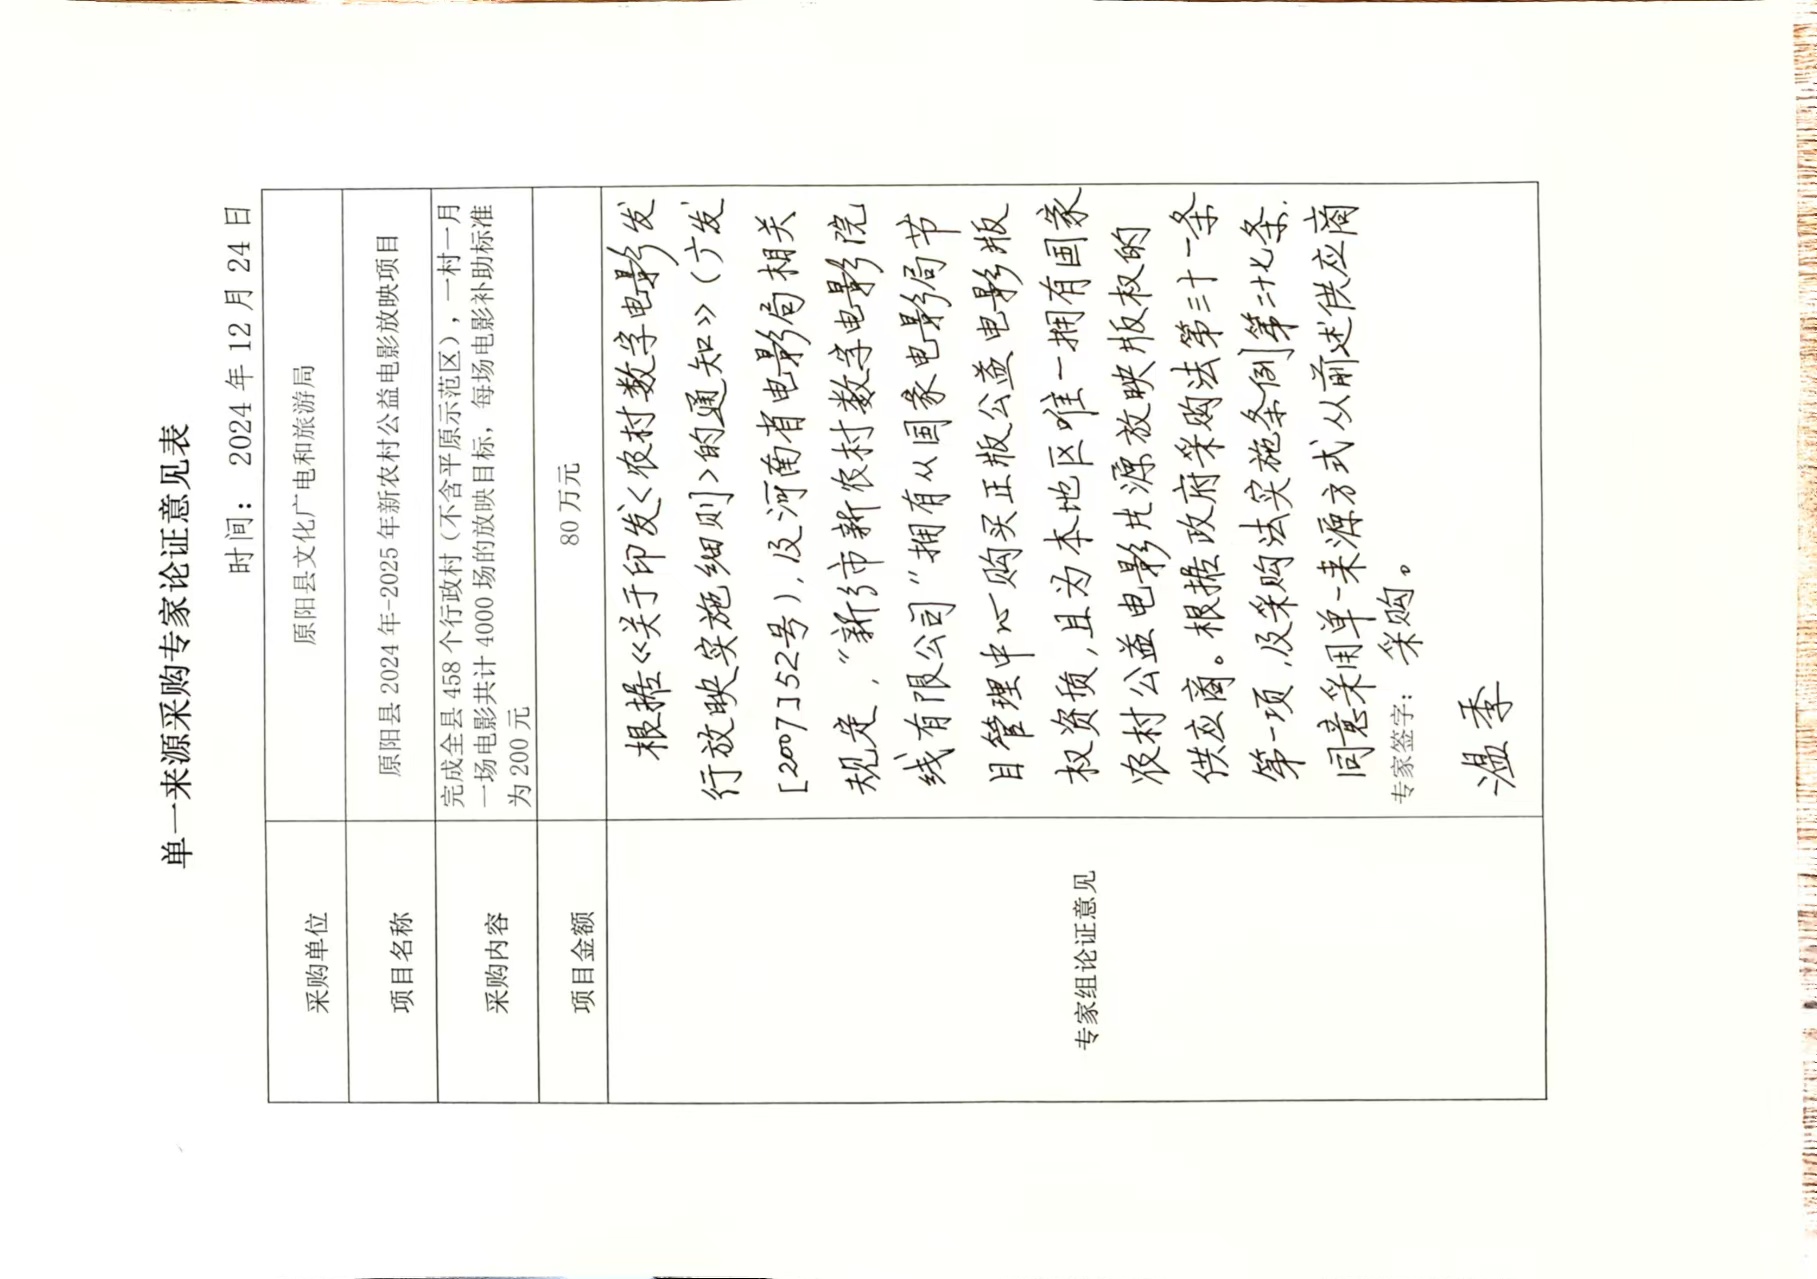 单一来源采购专家论证意见表
时间：2024 年 12 月 24 日
采购单位
原阳县文化广电和旅游局
项目名称
原阳县 2024 年-2025 年新农村公益电影放映项目
采购内容
完成全县 458 个行政村（不含平原示范区），一村一月
一场电影共计 4000 场的放映目标，每场电影补助标准
为 200 元
项目金额
80 万元
专家组论证意见
根据《关于印发<农村数字电影发
行放映实施细则>的通知》（广发
[2007]52号），及河南省电影局相关
规定，“新乡市新农村数字电影院
线有限公司”拥有从国家电影局节
目管理中心购买正版公益电影版
权资质，且为本地区唯一拥有国家
农村公益电影片源放映版权的
供应商。根据政府采购法第三十一条
第一项，及采购法实施条例第二十七条.
同意采用单一来源方式从前述供应商
采购。
专家签字：
温季